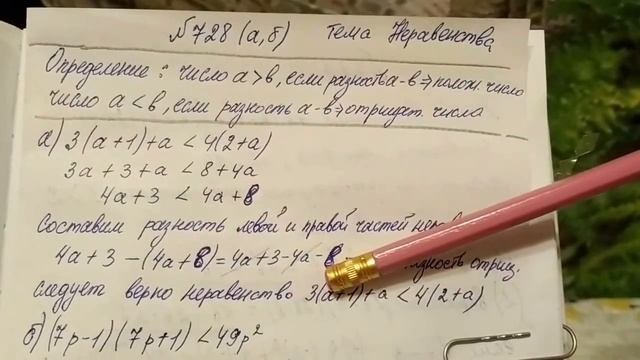 №728 (а,б) тема Неравенства
Определение: число а>в, если разность а-в⇒полож. число
число а<в, если разность а-в⇒отрицат. числа
а) 3(а+1)+а < 4(2+а)
3а+3+а < 8+4а
4а+3 < 4а+8
Составим разность левой и правой частей
4а+3-(4а+8)=4а+3-4а-8 отриц.
следует верно неравенство 3(а+1)+а < 4(2+а)
б) (7р-1)(7р+1) < 49р²